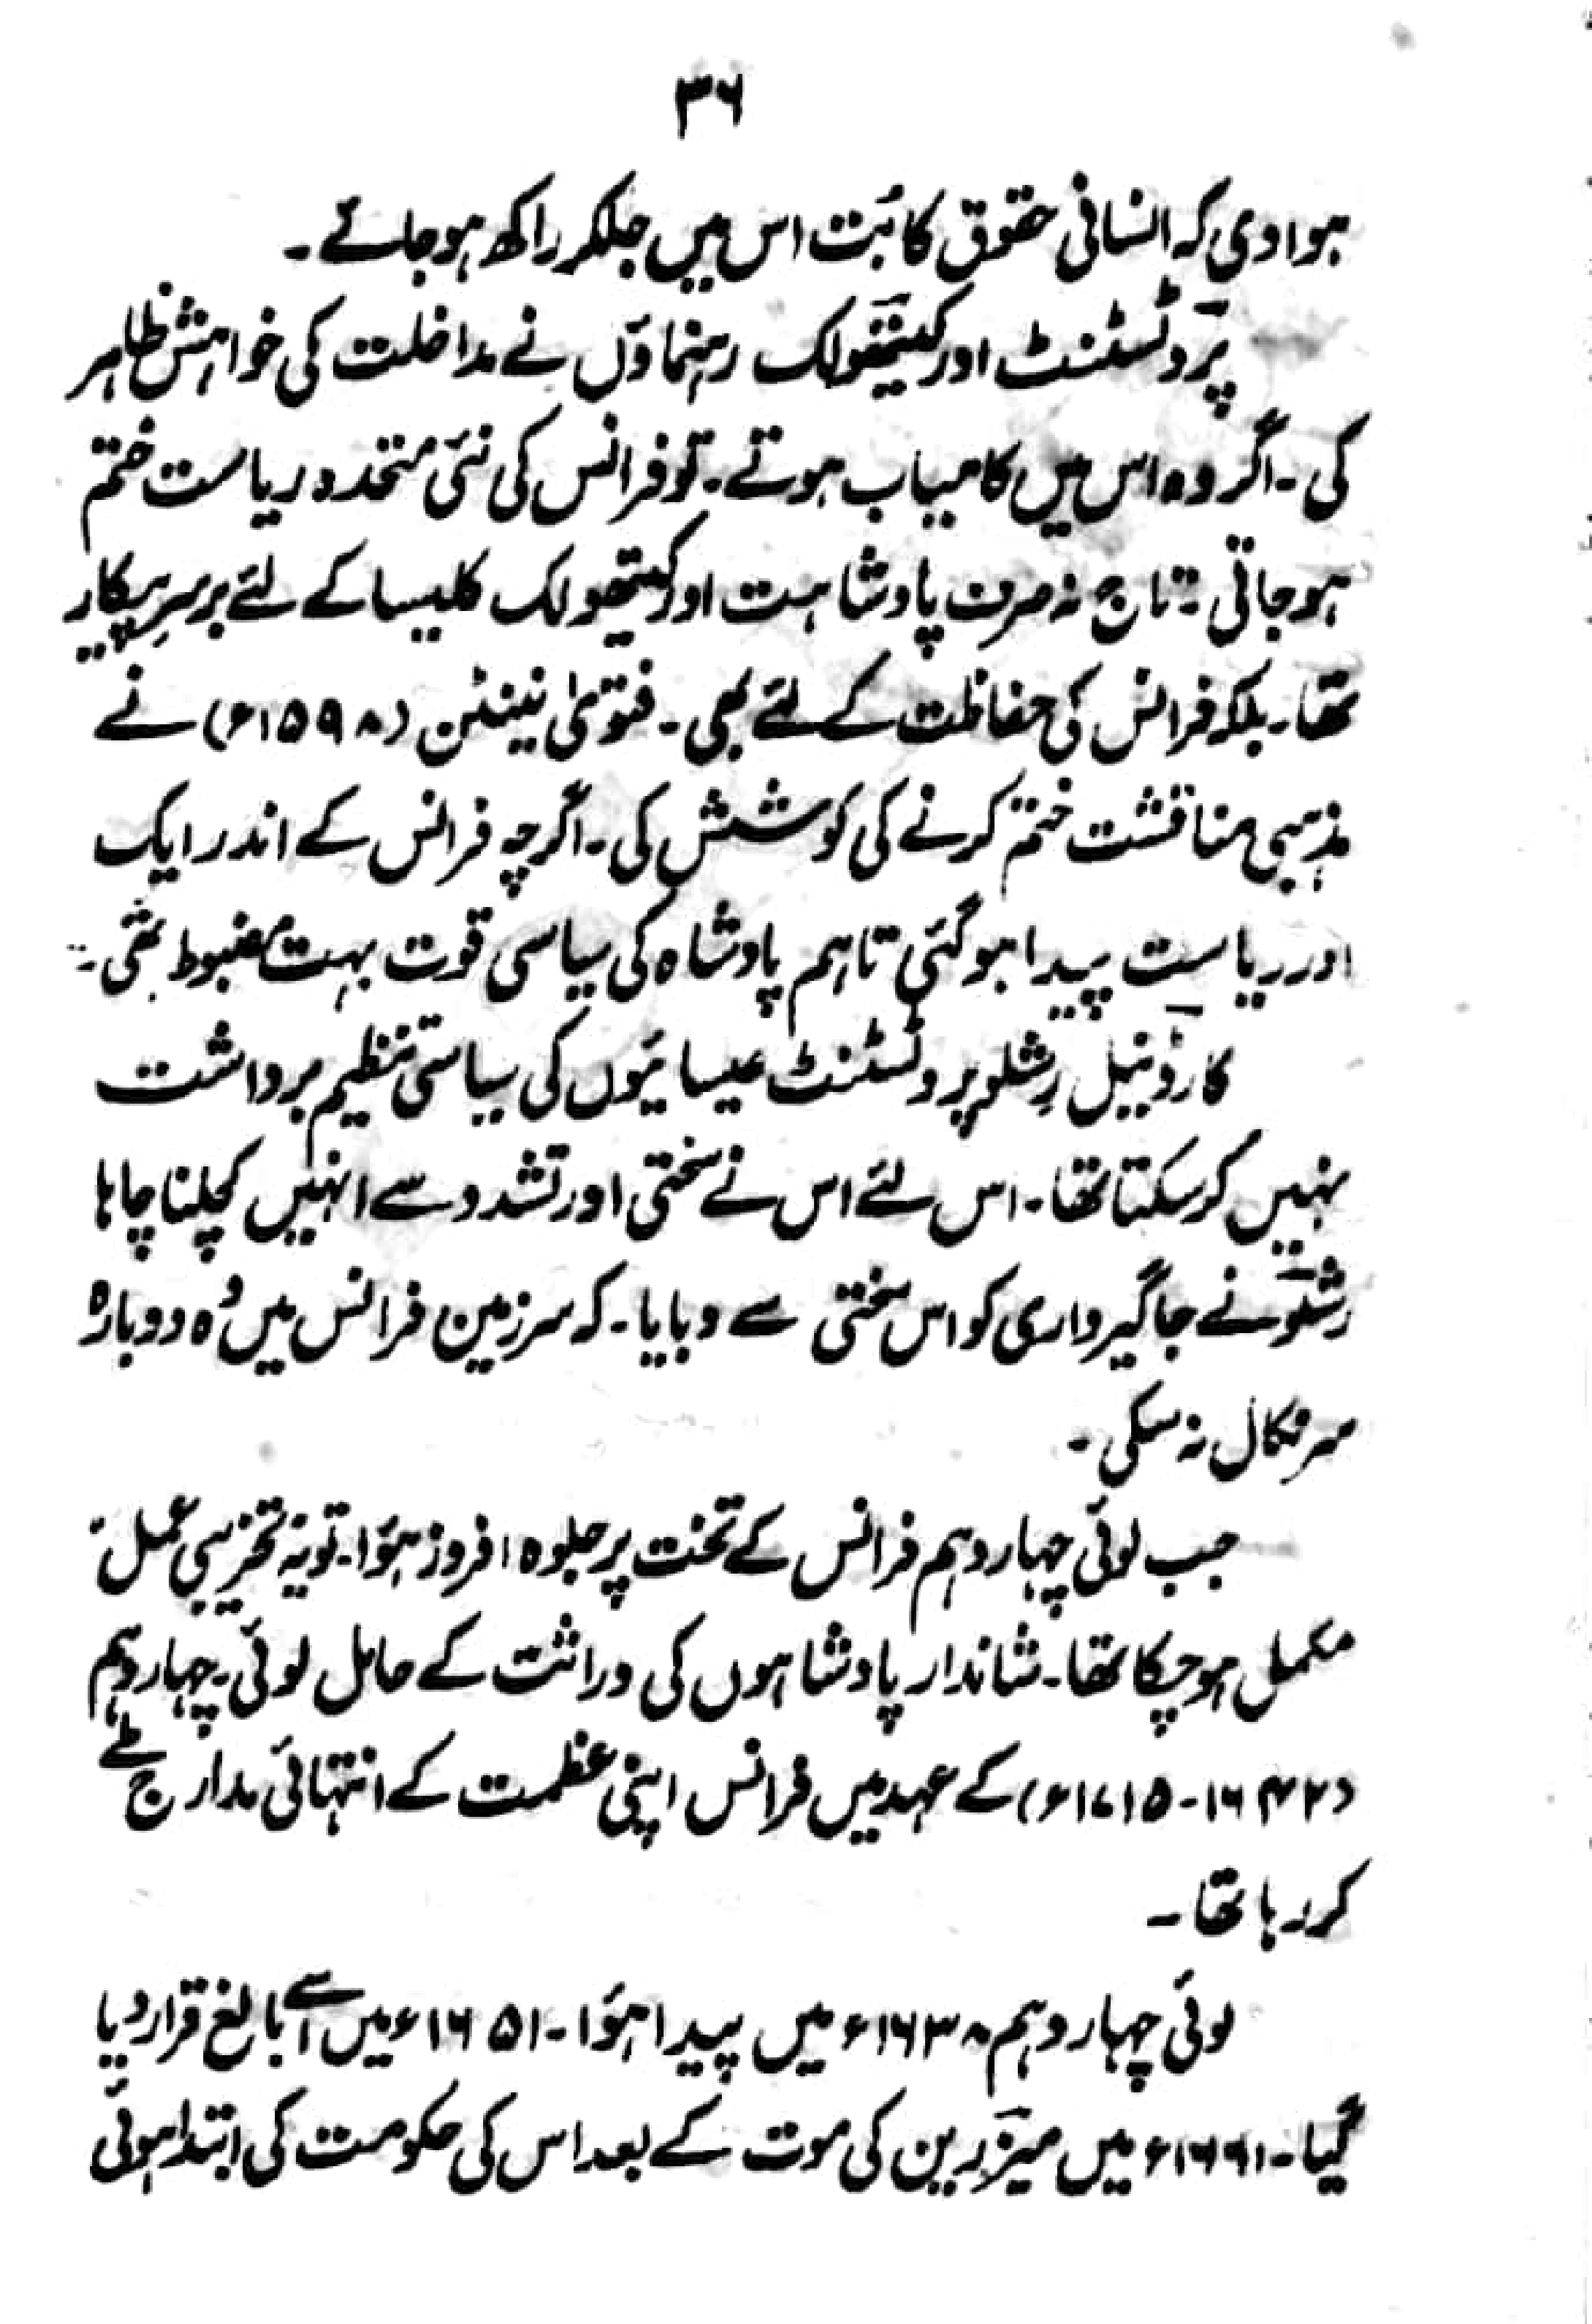 ۳۶
ہوا دی کہ انسانی حقوق کا بُت اس میں جلکر راکھ ہو جائے ۔
پروٹسٹنٹ اور کیتھولک رہنماؤں نے مداخلت کی خواہش ظاہر
کی ۔ اگر وہ اس میں کامیاب ہوتے ۔ تو فرانس کی نئی متحدہ ریاست ختم
ہو جاتی ۔ تاج نہ صرف پادشاہت اور کیتھولک کلیسا کے لئے برسرِپیکار
تھا ۔ بلکہ فرانس کی حفاظت کے لئے بھی ۔ فتویٰ نینٹن (۱۵۹۸ء) نے
مذہبی مناقشت ختم کرنے کی کوشش کی ۔ اگرچہ فرانس کے اندر ایک
اور ریاست پیدا ہو گئی تاہم پادشاہ کی سیاسی قوت بہت مضبوط تھی ۔
کارڈینل رِشلو پروٹسٹنٹ عیسائیوں کی سیاسی تنظیم برداشت
نہیں کر سکتا تھا ۔ اس لئے اس نے سختی اور تشدد سے انہیں کچلنا چاہا
رشلو نے جاگیرداری کو اس سختی سے دبایا ۔ کہ سرزمین فرانس میں وُہ دوبارہ
سر نکال نہ سکی ۔
جب لوئی چہار دہم فرانس کے تخت پر جلوہ افروز ہؤا ۔ تو یہ تخریبی عمل
مکمل ہو چکا تھا ۔ شاندار پادشاہوں کی وراثت کے حامل لوئی چہار دہم
(۱۶۴۲-۱۷۱۵ء) کے عہد میں فرانس اپنی عظمت کے انتہائی مدارج طے
کر رہا تھا ۔
لوئی چہار دہم ۱۶۳۸ء میں پیدا ہؤا ۔ ۱۶۵۱ء میں اُسے بالغ قرار دیا
گیا ۔ ۱۶۶۱ء میں میزرین کی موت کے بعد اس کی حکومت کی ابتدا ہوئی